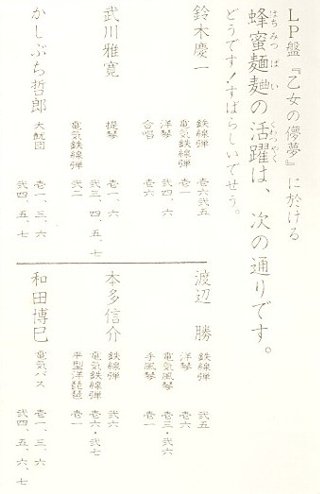 LP盤『乙女の儚夢』に於ける
蜂蜜麺麭の活躍は、次の通りです。
はちみつ ぱい かつやく
どうです！すばらしいでせう。
鈴木慶一
鉄線弾 壱六弐五
洋琴 弐四、六
電気鉄線弾 壱一
合唱 壱六
武川雅寛
提琴 壱一、六
弐三、四、五、七
電気鉄線弾 弐二
かしぶち哲郎
大皷図 壱一、三、六
弐四、五、七
渡辺 勝
鉄線弾 弐五
洋琴 壱六
電気風琴 壱三・弐六
手風琴 壱一
本多信介
鉄線弾 弐六
電気鉄線弾 壱六・弐七
平型洋琵琶 壱一
和田博巳
電気バス 壱一、三、六
弐四、五、六、七